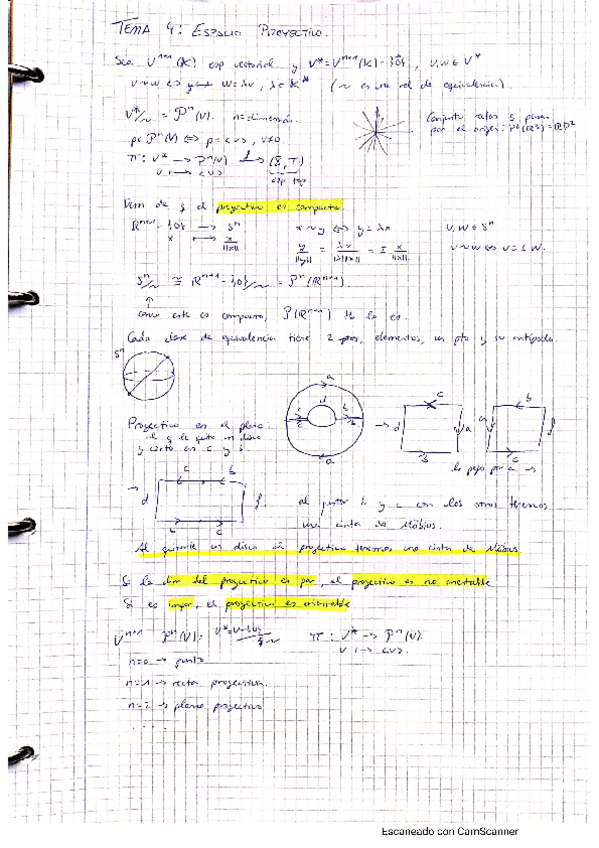 TEMA 4: ESPACIO PROYECTIVO.
Sea Vⁿ⁺¹(K) esp vectorial y V* = Vⁿ⁺¹(K) - {0}, v, w ∈ V*
v ~ w ⇔ w = λv, λ ∈ K* (~ es una rel de equivalencia).
V*/~ = Pⁿ(V). n = dimensión.
Conjunto rectas q pasan
por el origen: P²(R³) = RP²
p ∈ Pⁿ(V) ⇔ p = <v>, v≠0
π: V* → Pⁿ(V) → (8, T)
v ↦ <v> esp top
Dem de q el proyectivo es compacto.
Rⁿ⁺¹ - {0} → Sⁿ x ~ y ⇔ y = λx v, w ∈ Sⁿ
x ↦ x/||x|| y/||y|| = λx/|λ|||x|| = ± x/||x|| v ~ w ⇔ v = ± w.
Sⁿ/~ ≅ Rⁿ⁺¹ - {0}/~ = Pⁿ(Rⁿ⁺¹)
↑
como este es compacto, P(Rⁿ⁺¹) tb lo es.
Cada clase de equivalencia tiene 2 ptos, elementos, un pto y su antípoda.
Sⁿ
a
d
c b
a
c
d a
b
b
a f
c
Proyectivo en el plano:
si q le quito un disco
y corto en c y b.
lo pego por a →
→
c b
d f.
b c
al juntar b y c con los otros tenemos
una cinta de Möbius.
Al quitarle un disco al proyectivo tenemos una cinta de Möbius
Si la dim del proyectivo es par, el proyectivo es no orientable
Si es impar, el proyectivo es orientable
Vⁿ⁺¹ Pⁿ(V) = V* = V - {0}/~ π: V* → Pⁿ(V).
v ↦ <v>.
n=0 → punto
n=1 → recta proyectiva.
n=2 → plano proyectivo
.....
Escaneado con CamScanner